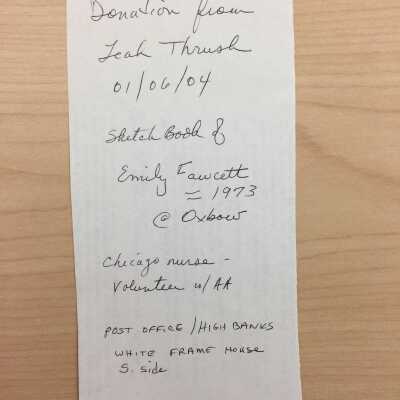 Donation from
Leah Thrush
01/06/04
Sketch Book of
Emily Fawcett
≈ 1973
@ Oxbow
Chicago nurse -
Volunteer w/ AA
POST OFFICE / HIGH BANKS
WHITE FRAME HOUSE
S. side